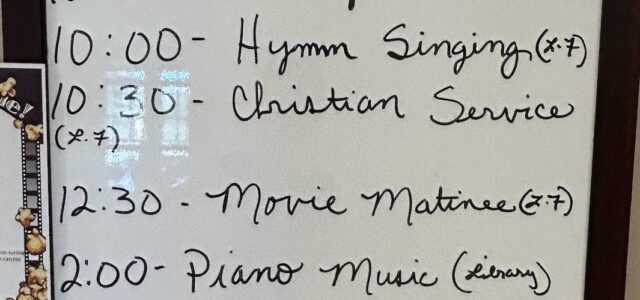 10:00 - Hymn Singing (L.F)
10:30 - Christian Service
(L.F)
12:30 - Movie Matinee (L.F)
2:00 - Piano Music (Library)